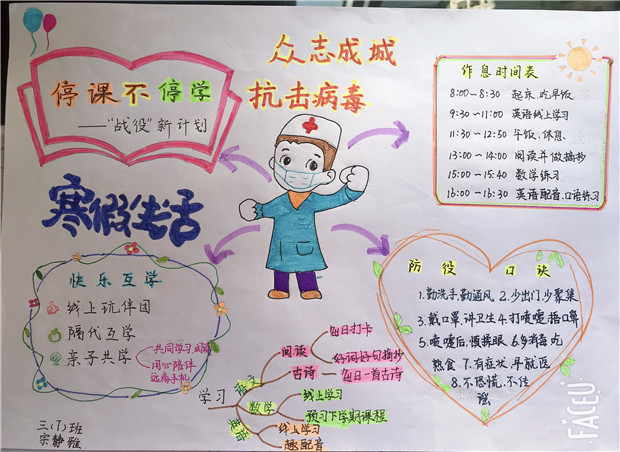 众志成城
抗击病毒
停课不停学
——"战役"新计划
作息时间表
8:00~8:30 起床、吃早饭
9:30~11:00 英语线上学习
11:30~12:50 午饭、休息
13:00~14:00 阅读并做摘抄
15:00~15:40 数学练习
16:00~16:30 英语配音、口语练习
寒假生活
快乐互学
线上玩伴团
隔代互学
亲子共学
用心陪伴
远离手机
防役口诀
1.勤洗手,勤通风 2.少出门,少聚集
3.戴口罩,讲卫生 4.打喷嚏,捂口鼻
5.喷嚏后,慎揉眼 6.多消毒 吃
熟食 7.有症状,早就医
8.不恐慌,不信
谣
学习
语文
阅读
每日打卡
好词好句摘抄
古诗
每日一首古诗
数学
线上学习
预习下学期课程
英语
线上学习
趣配音
三(7)班
宗静雅
FACEU